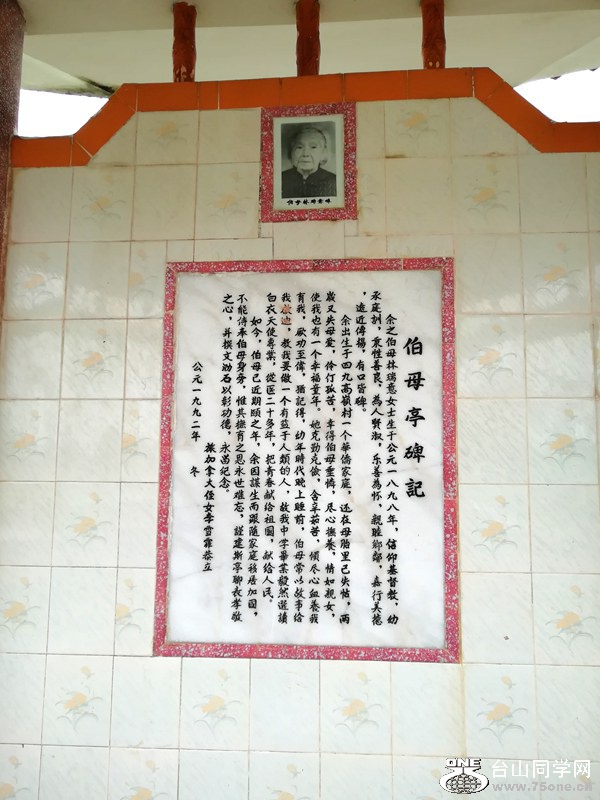 伯母林瑞意
伯母亭碑記
余之伯母林瑞意女士生于公元一八九八年，信仰基督教，幼
承庭訓，秉性善良，為人賢淑，乐善為怀，親睦鄰鄰，嘉行美德
，遠近傳揚，有口皆碑。
余出生于四九高嶺村一个華僑家庭，还在母胎里已失怙，两
歲又失母爱，伶仃孤苦，幸得伯母垂憐，尽心撫養，情如親女，
使我也有一个幸福童年。她克勤克儉，含辛茹苦，傾尽心血養我
育我，厥功至偉，猶記得，幼年時代晚上睡前，伯母常以故事给
我啟迪，教我要做一个有益于人類的人，故我中学畢業毅然選讀
白衣天使專業，從医二十多年，把青春献给祖國，献给人民。
如今，伯母已近期颐之年，余因謀生而跟随家庭移居加國，
不能侍奉伯母身旁，惟其撫育之恩永世难忘，謹建斯亭聊表孝敬
之心，并撰文勒石以彰功德，永留纪念。
旅加拿大侄女李雪霏恭立
公元一九九二年 冬
ONE
台山同学网
www.75one.cn